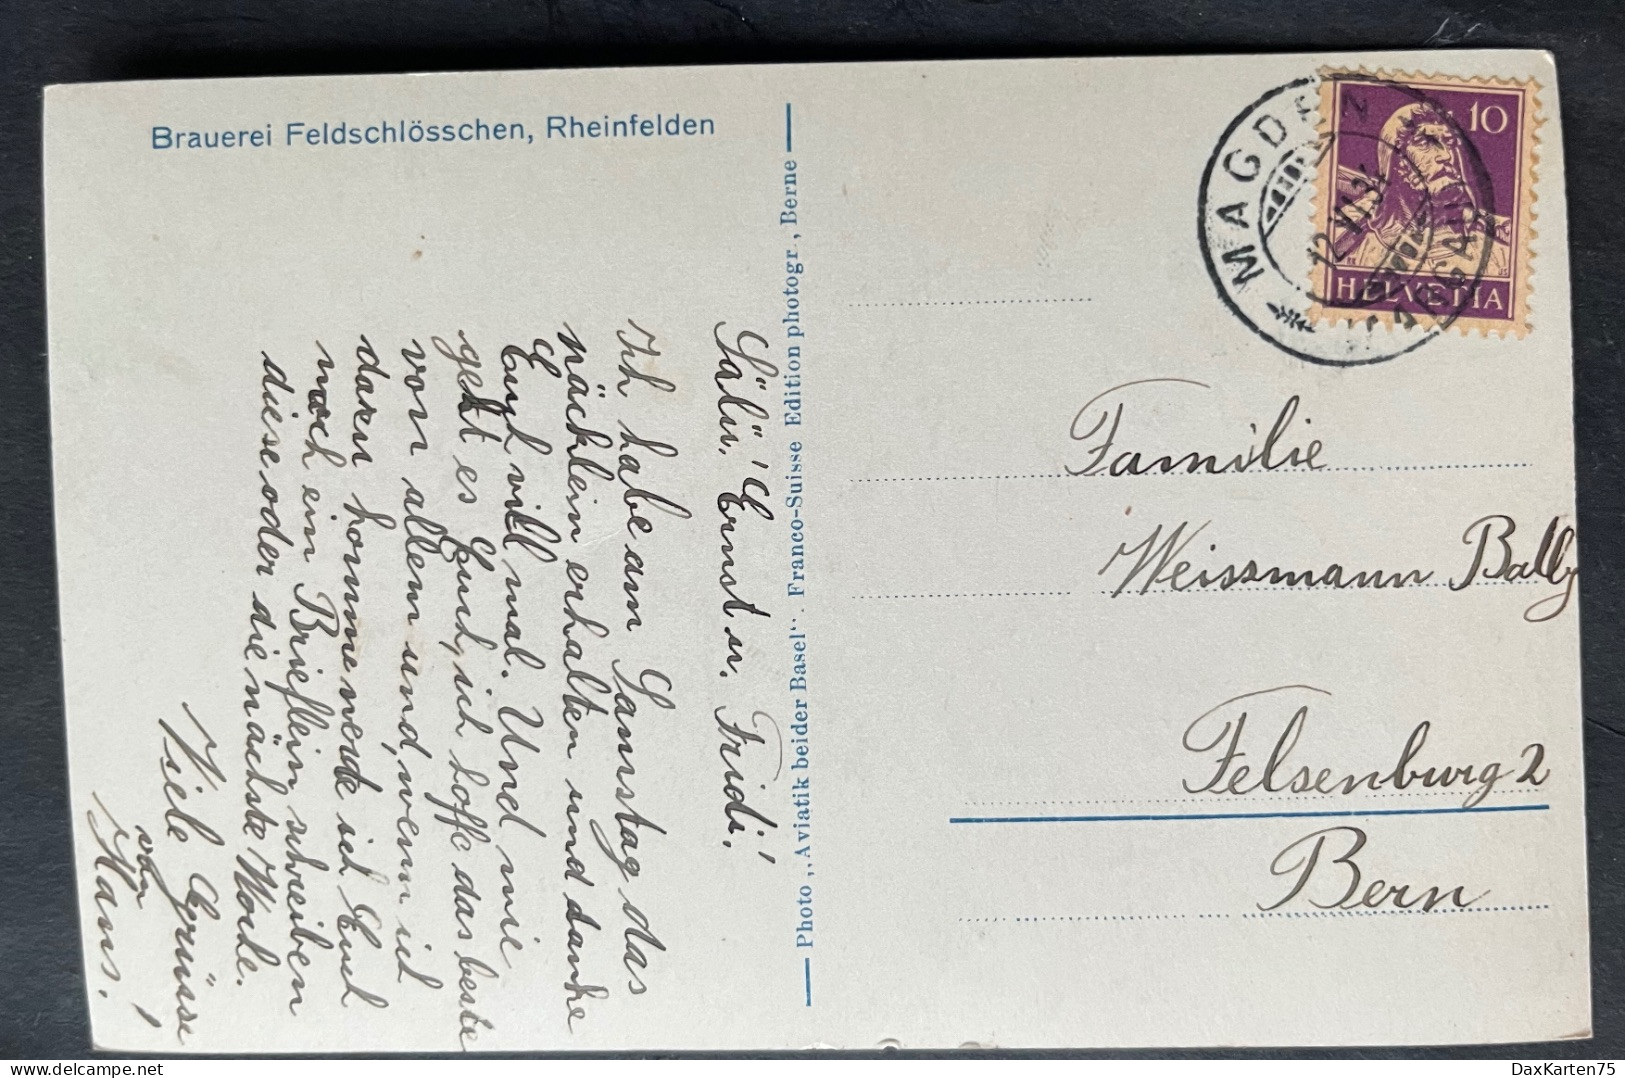 Brauerei Feldschlösschen, Rheinfelden
Photo „Aviatik beider Basel“. Franco-Suisse Edition photogr., Berne
Salü! Ernst u. Fridi!
Ich habe am Samstag das
päcklein erhalten und danke
Euch vill mal. Und wie
geht es Euch, ich hoffe das beste
von allem und, wenn ich
darzu komme werde ich Euch
noch ein Brieflein schreiben
diese oder die nächste Woche.
Viele Grüsse
von
Hans.
10
HELVETIA
MAGDEN
12.VI.34
(AARGAU)
Familie
Weissmann Bally
Felsenburg 2
Bern
DaxKarten75